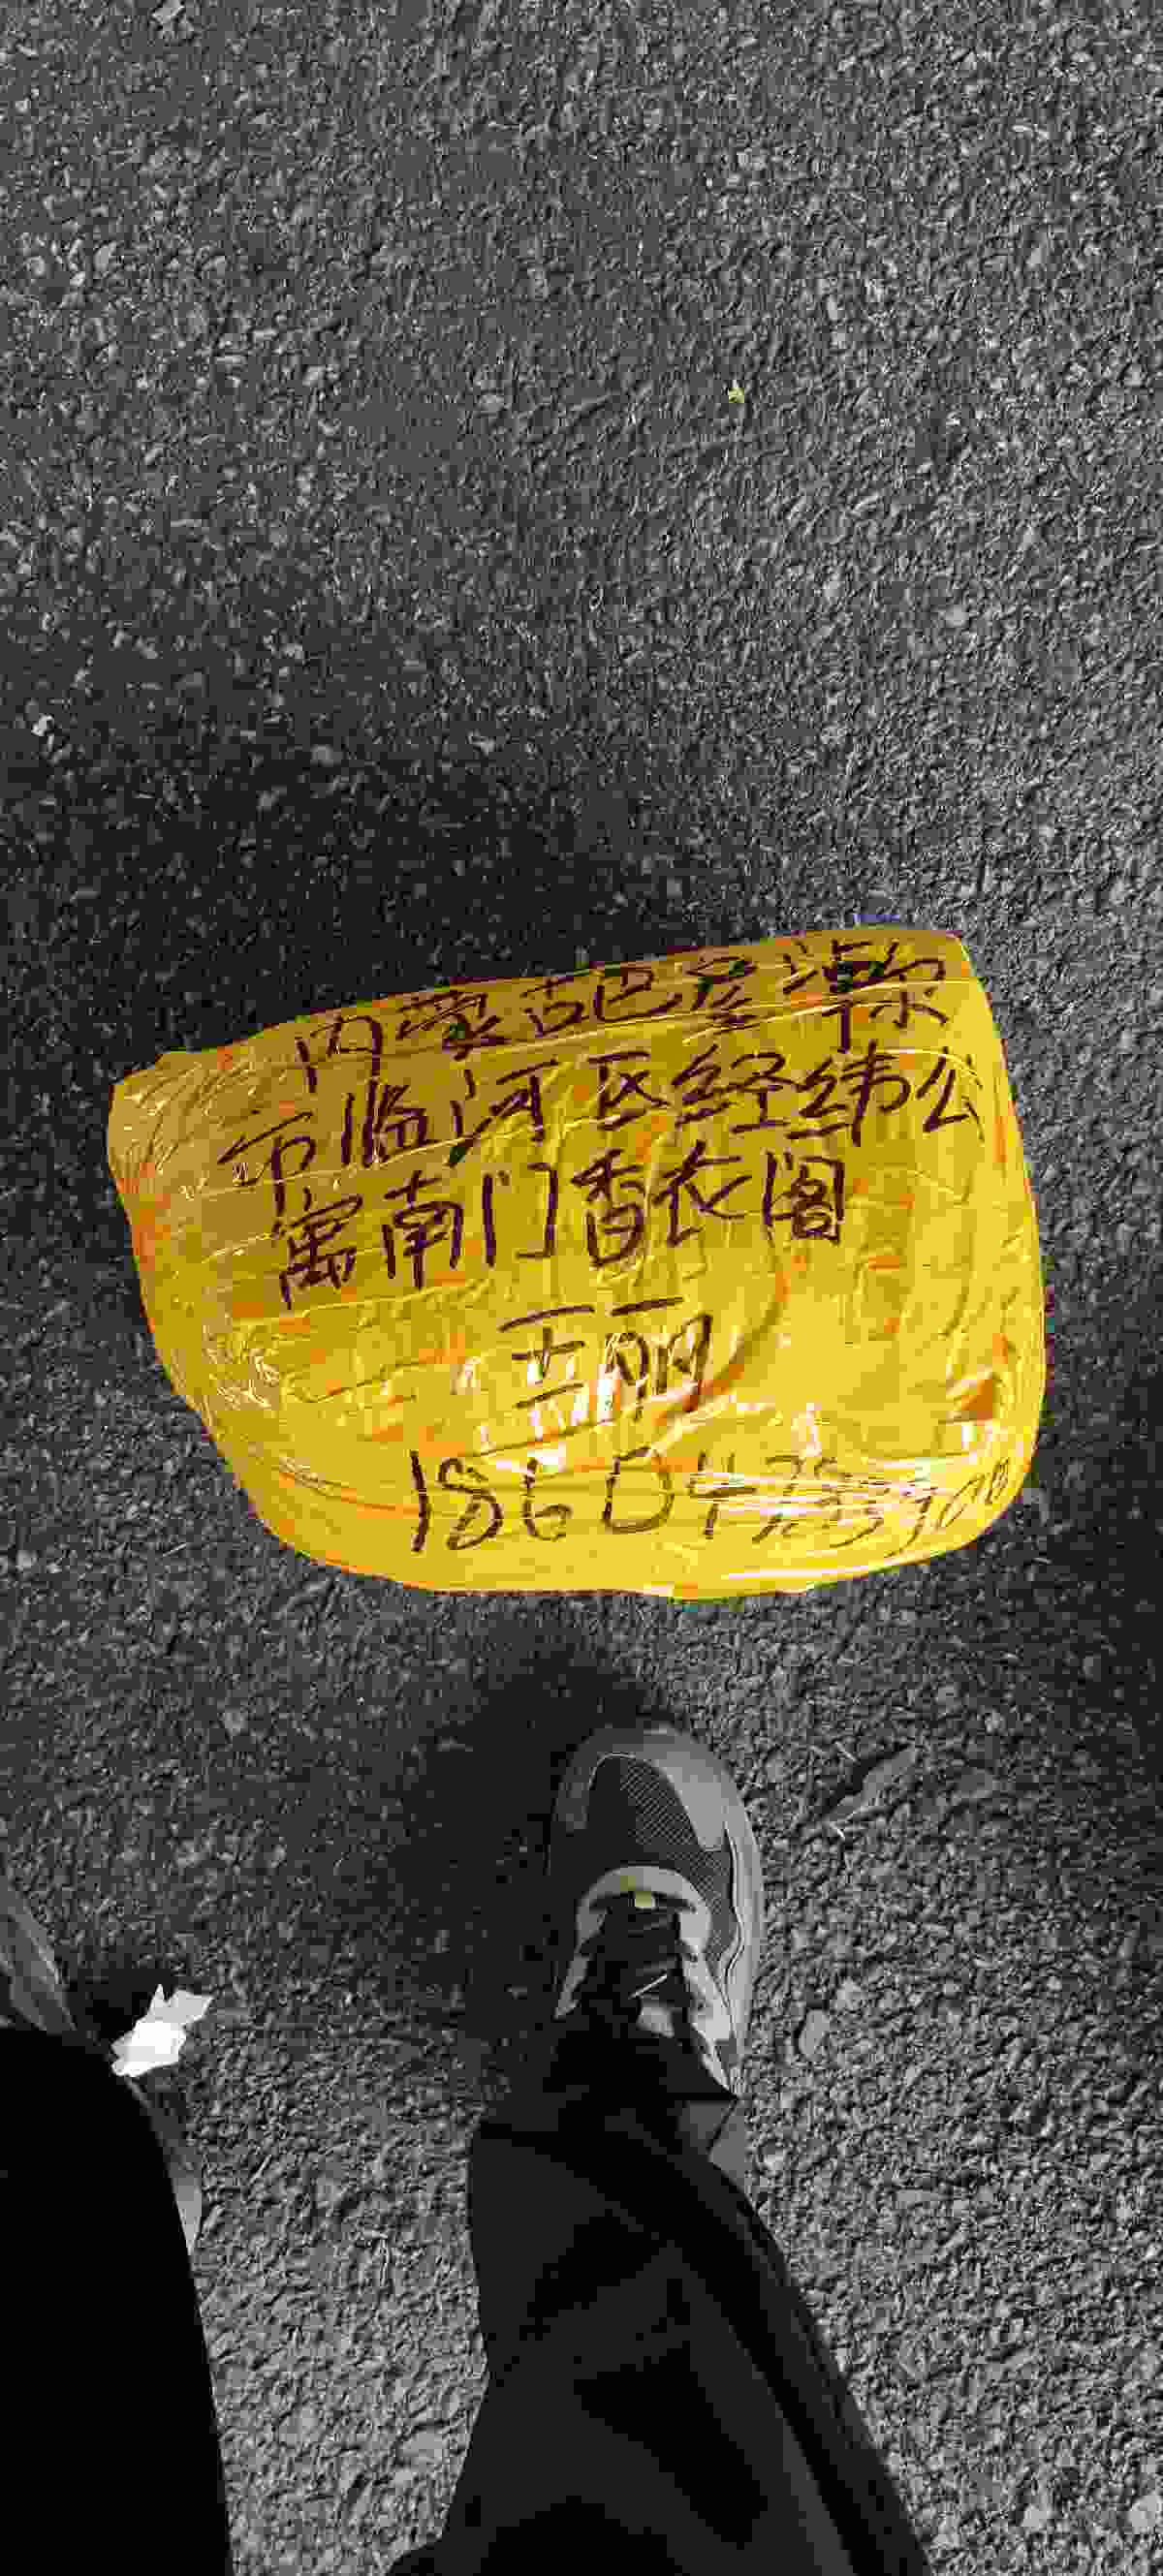 内蒙古巴彦淖尔
市临河区经纬公
寓南门香衣阁
王丽